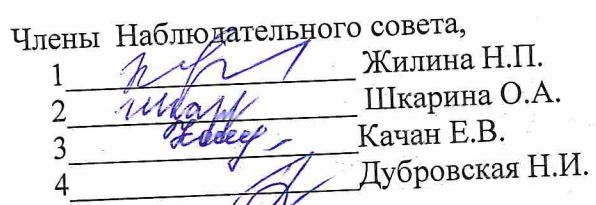 Члены Наблюдательного совета,
1 Жилина Н.П.
2 Шкарина О.А.
3 Качан Е.В.
4 Дубровская Н.И.